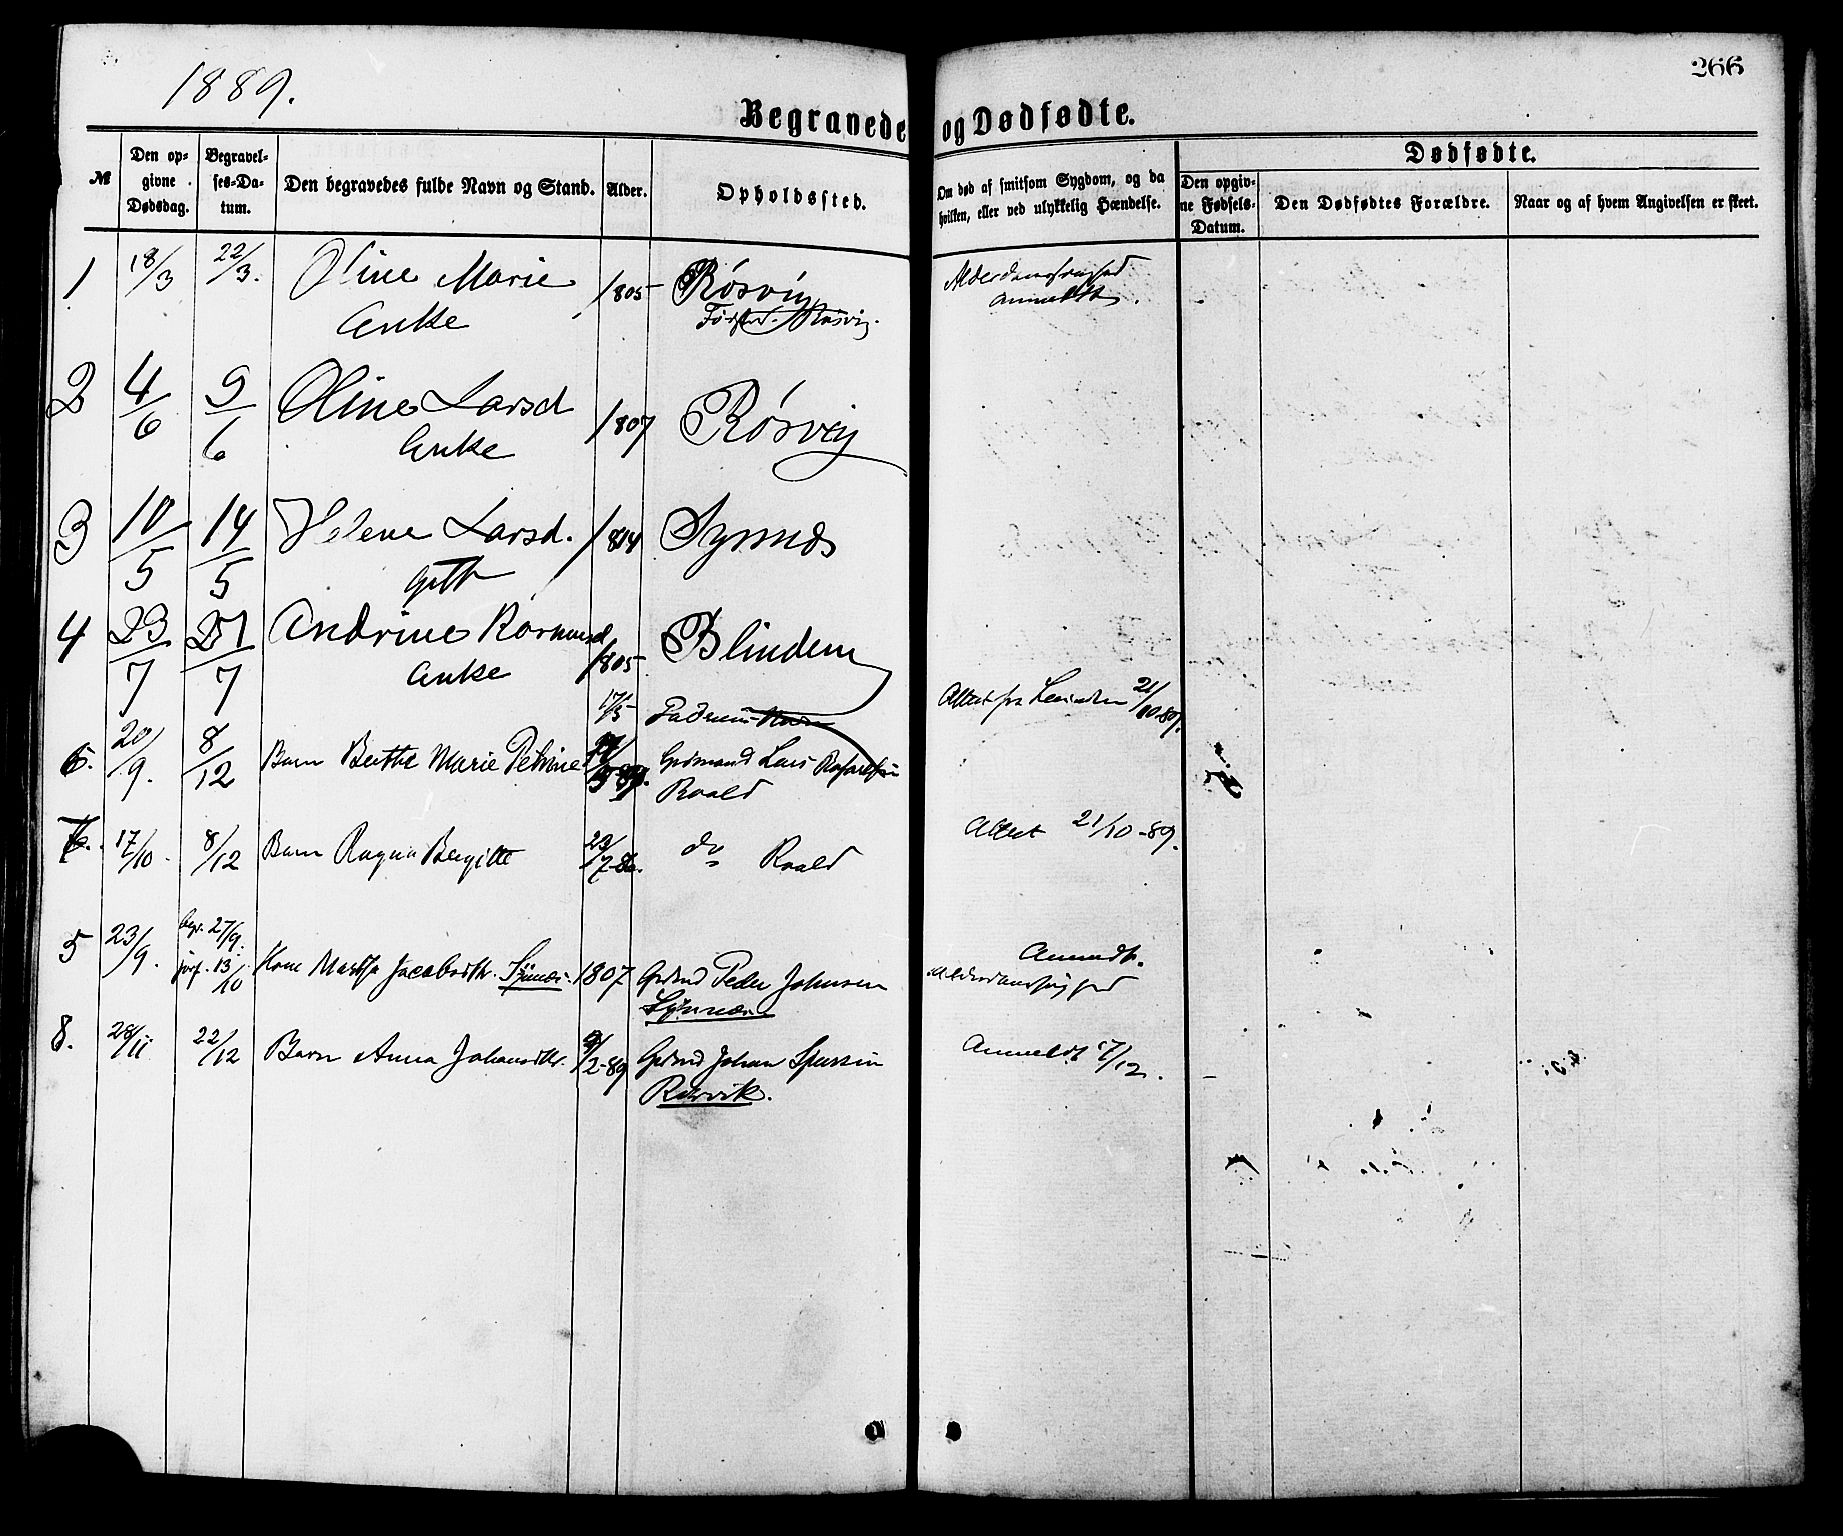 1889.
266
Begravede og Dødfødte.
№
Den opgivne Dødsdag.
Begravelses-Datum.
Den begravedes fulde Navn og Stand.
Alder.
Opholdssted.
Om død af smitsom Sygdom, og da hvilken, eller ved ulykkelig Hændelse.
Dødfødte.
Den opgivne Fødsels-Datum.
Den Dødfødtes Forældre.
Naar og af hvem Angivelsen er skeet.
1 18/3 22/3. Oline Marie 1805 Røsvig Alderdomssvaghed
Enke Rosvig. anmeldt.
2 4/6 9/6 Oline Larsd 1807 Røsvig
Enke
3 10/5 14/5 Helene Larsd. 1814 Synnæs
gift
4 23/7 27/7 Andrine 1805 Blindem
Enke
17/5 Attest fra 21/10 89.
6. 20/9. 8/12 Barn Berthe Marie Petrine Grdmand Lars
Roald
7. 17/10. 8/12 Barn Ragna Bergitte 23/7-86. do Roald Attest 21/10-89.
5 23/9. begr. 27/9. Anmdt.
jorf. 13/10 Kone Martha Jacobsdtr. Synnæs. 1807 Grdmd Peder Johnsen Alderdomssvaghed
Synnæs
8. 28/11 22/12 Barn Anna Johansdtr. 9/2-89 Grdmd Johan Anmeldt 17/12.
Rørvik.